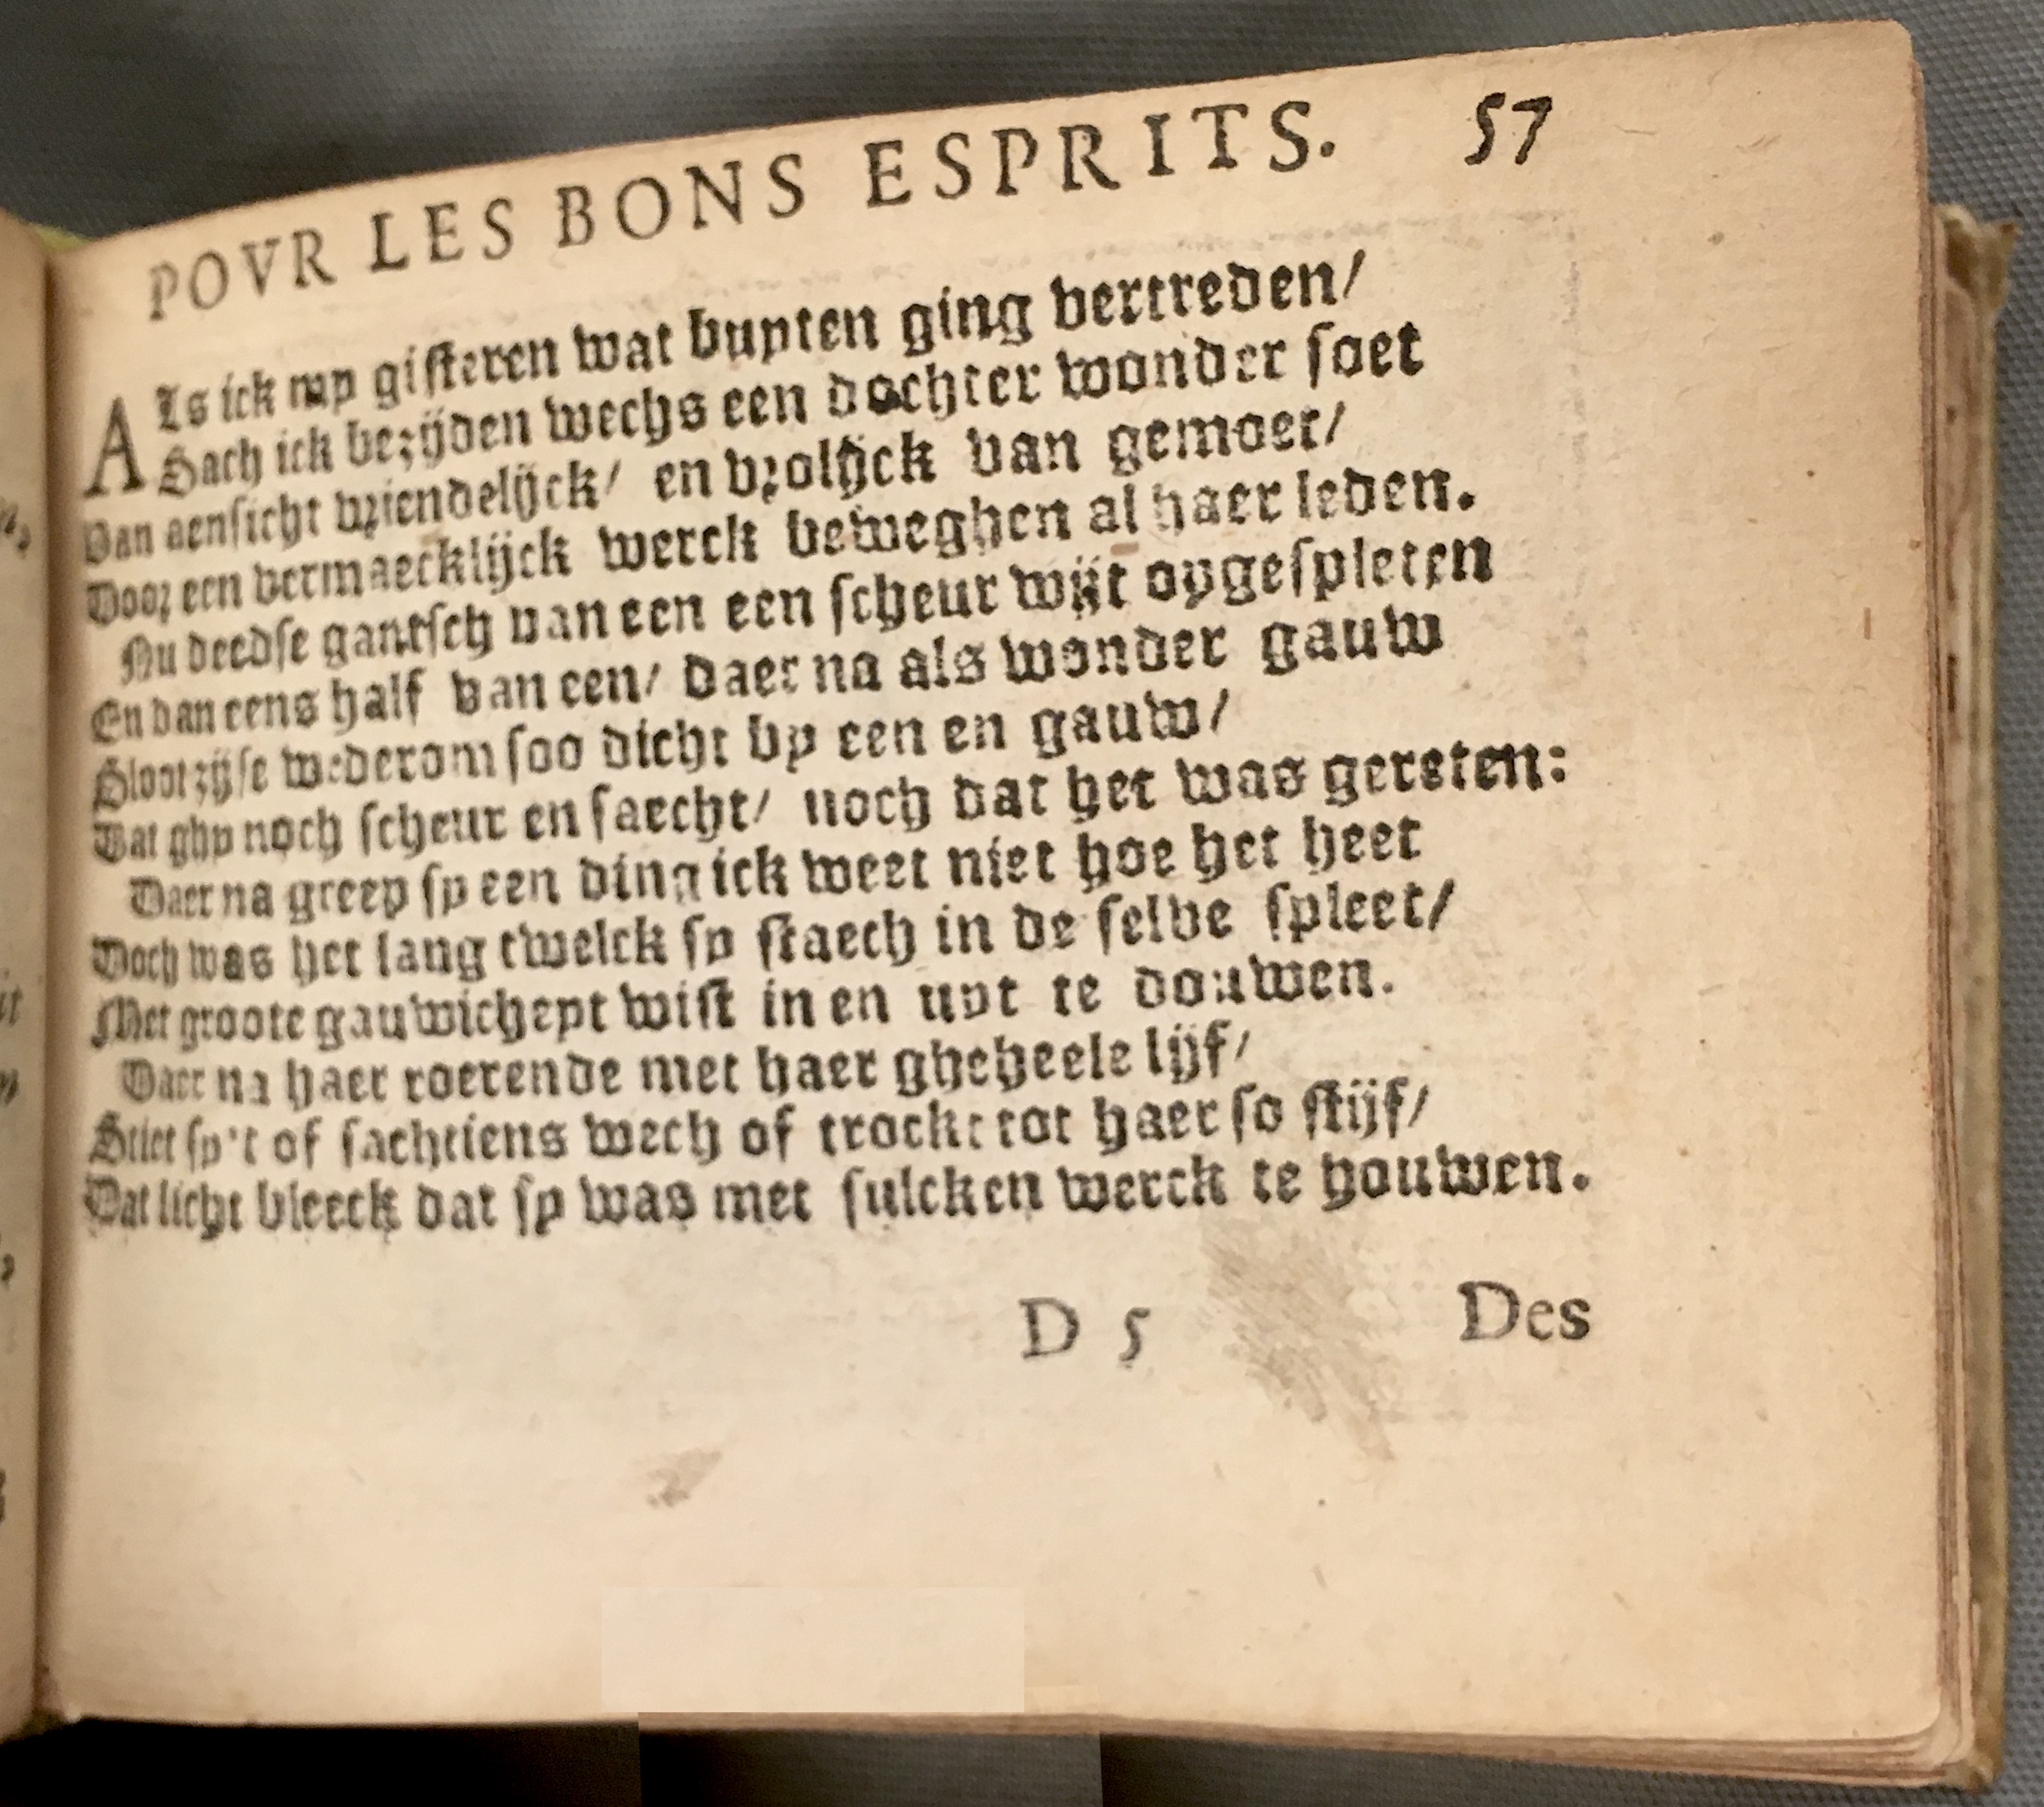 POVR LES BONS ESPRITS. 57
ALs ick my gisteren wat buyten ging vertreden/
Sach ick bezijden wechs een dochter wonder soet
Van aensicht vriendelijck/ en vrolijck van gemoet/
Door een vermaecklijck werck beweghen al haer leden.
Nu deedse gantsch van een een scheur wijt opgespleten
En dan eens half van een/ daer na als wonder gauw
Sloot zijse wederom soo dicht by een en gauw/
Dat ghy noch scheur en saecht/ noch dat het was gereten:
Daer na greep sy een ding ick weet niet hoe het heet
Doch was het lang twelck sy staech in de selve spleet/
Met groote gauwicheyt wist in en uyt te douwen.
Daer na haer roerende met haer gheheele lijf/
Stiet sy't of sachtiens wech of trockt tot haer so stijf/
Dat licht bleeck dat sy was met sulcken werck te houwen.
D 5 Des